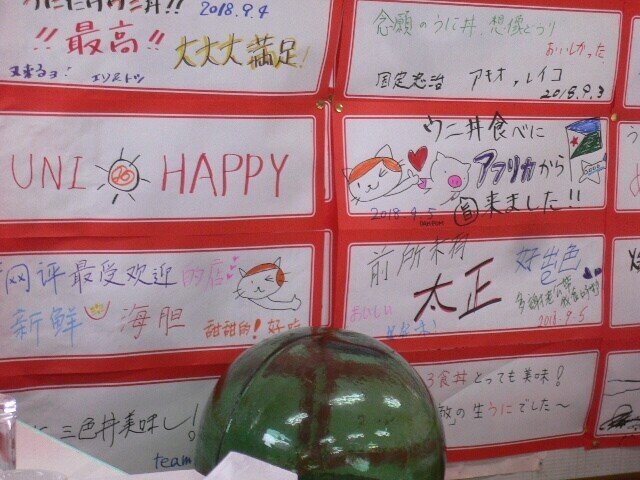 うにだけウニ丼!!
2018.9.4
!!最高!!
大大大満足!
又来るョ!
念願のうに丼、想像どうり
おいしかった
国定忠治 アキオ,レイコ
2018.9.3
UNI HAPPY
ウニ丼食べに
アフリカから
来ました!!
2018.9.5
网评最受欢迎的店
新鲜 海胆
甜甜的!好吃
前所未有
太正
好出色
おいしい
2018.9.5
3食丼とっても美味!
の生うにでした〜
に三色丼美味し!
team